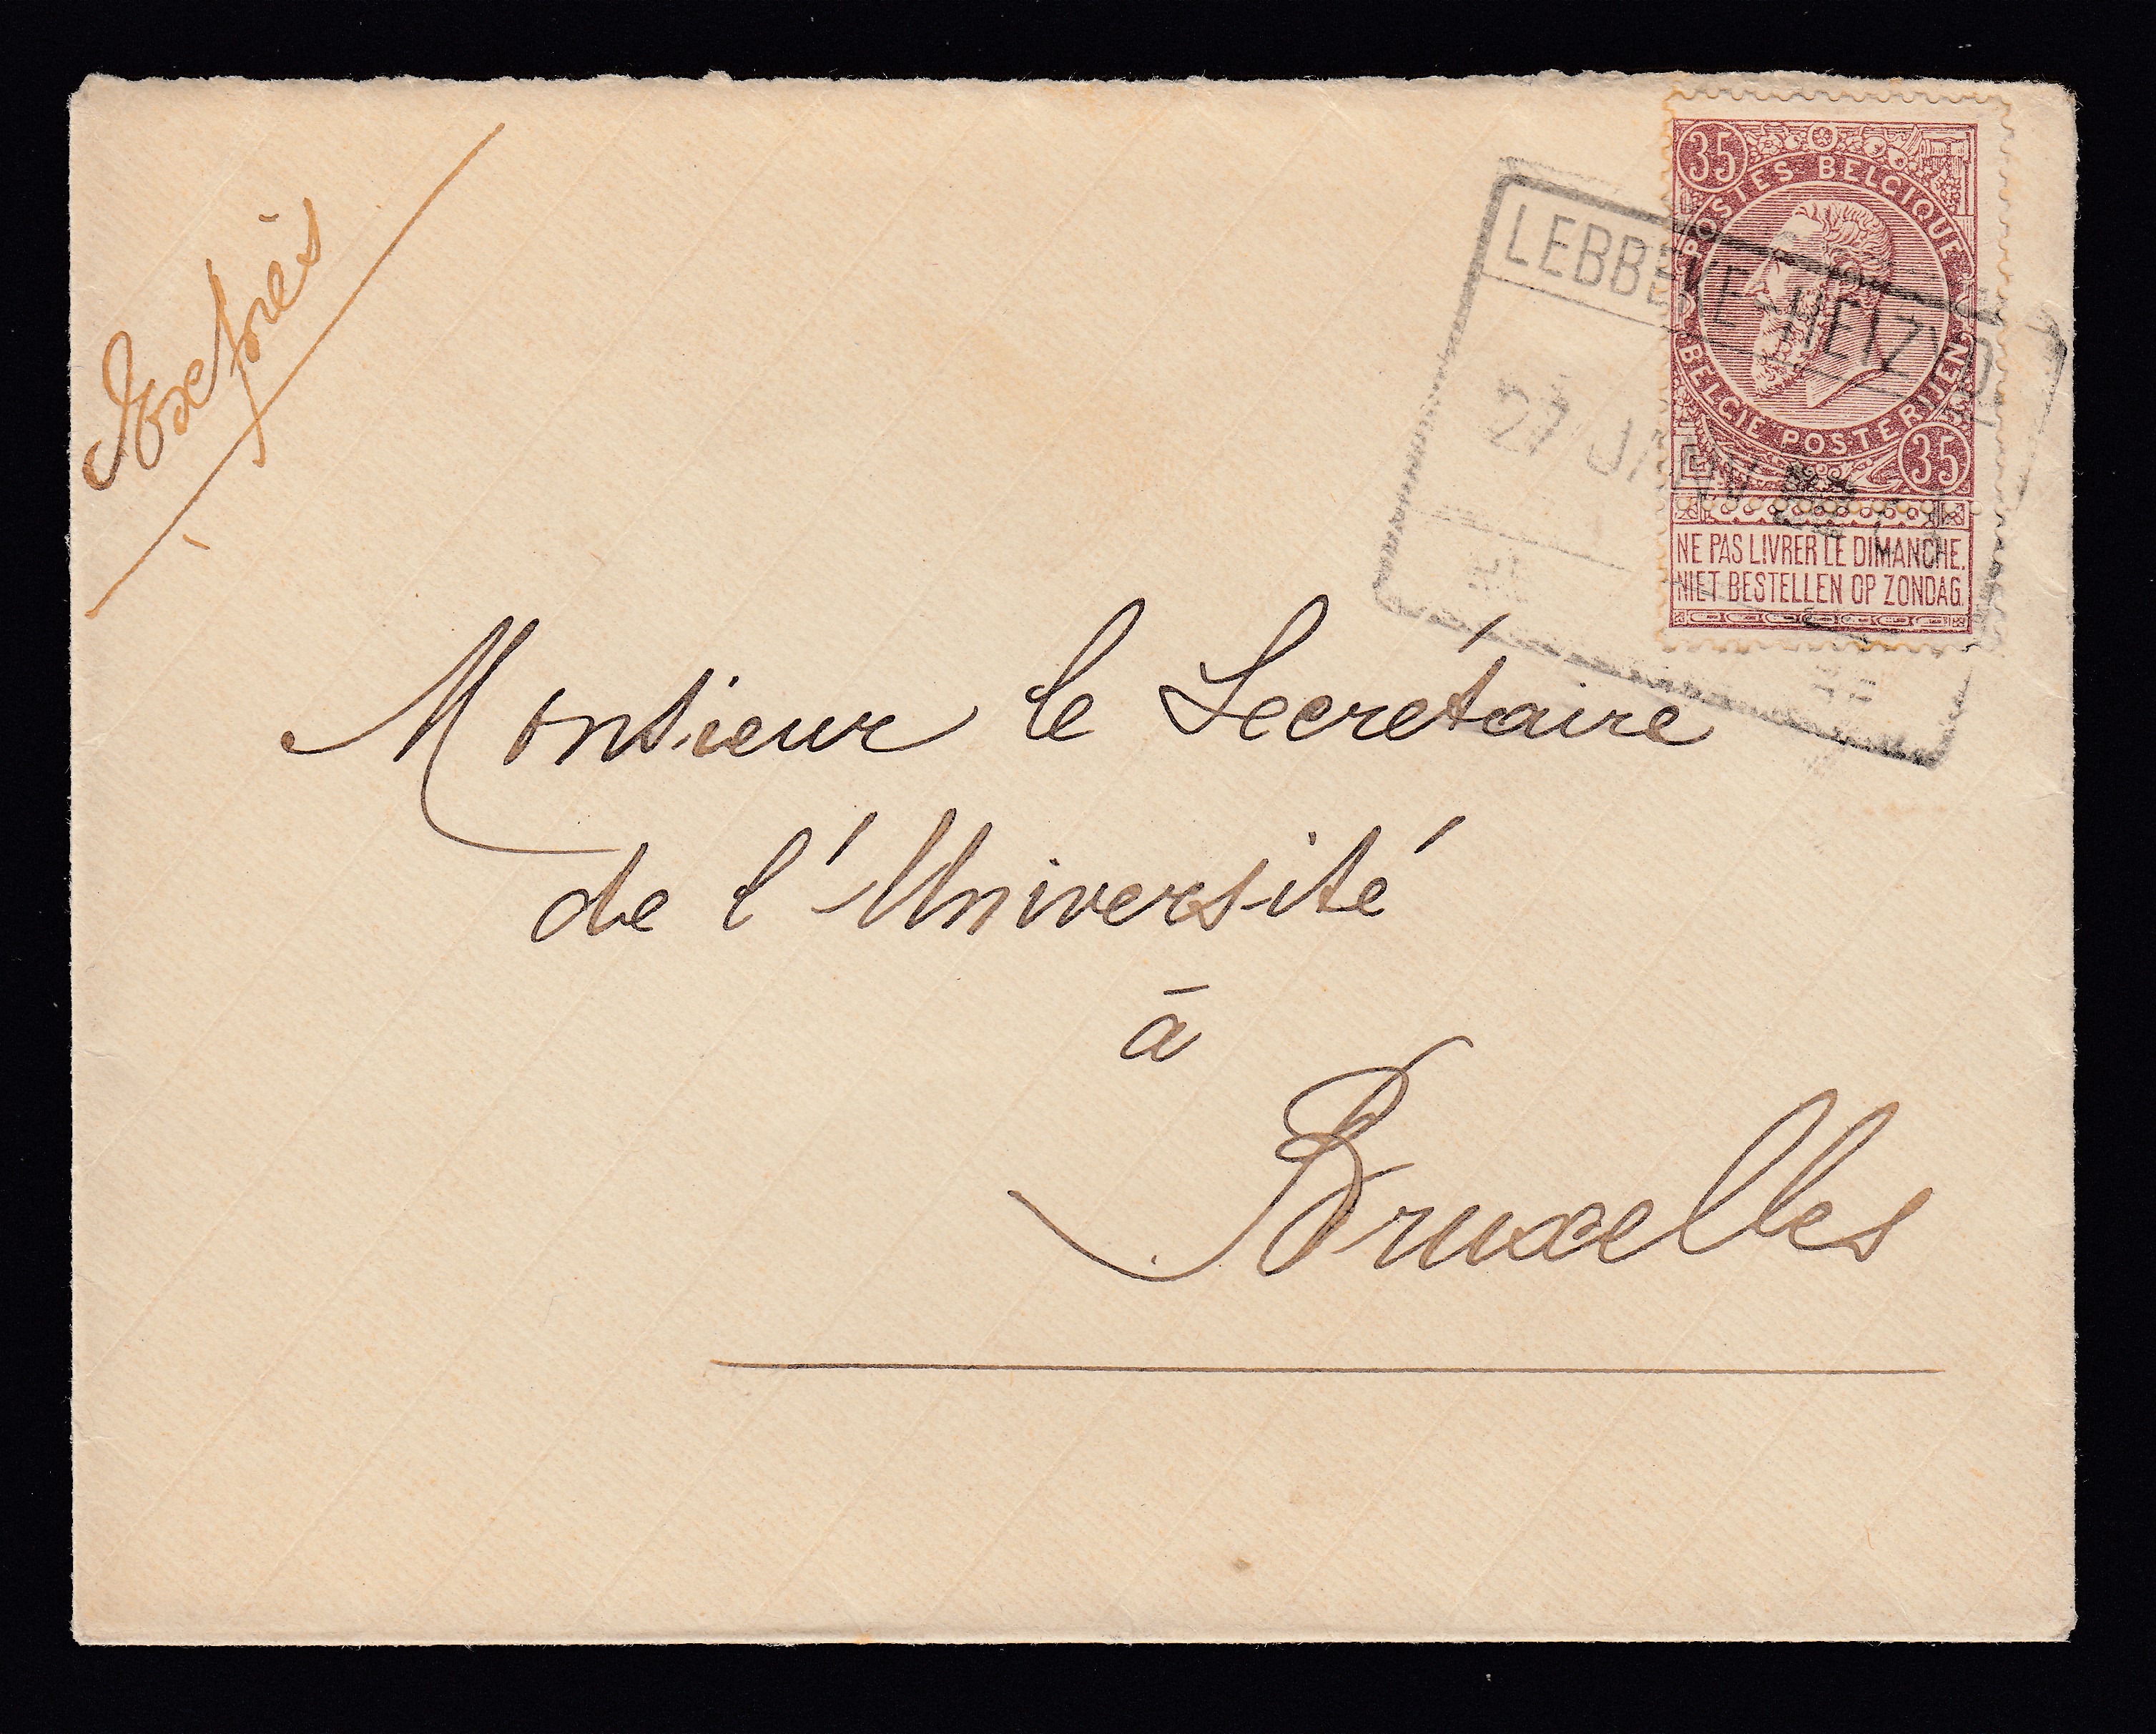 Exprès
35
POSTES BELGIQUE
LEBBEKE-HEIZIJDE
27 JANV
BELGIE POSTERIJEN
35
NE PAS LIVRER LE DIMANCHE.
NIET BESTELLEN OP ZONDAG.
Monsieur le Secrétaire
de l'Université
à
Bruxelles